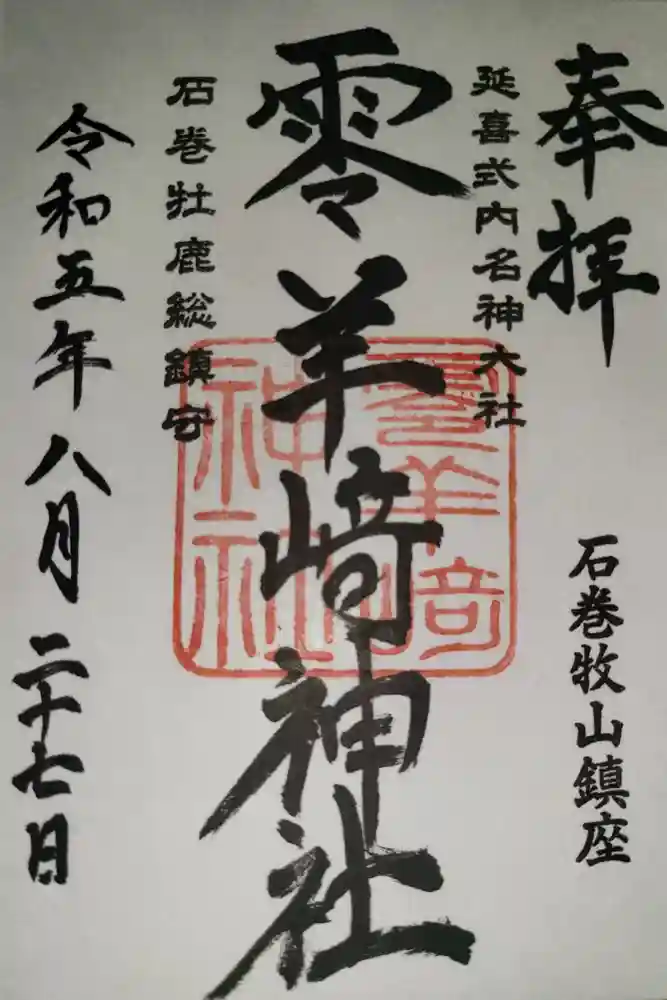 奉拝
石巻牧山鎮座
延喜式内名神大社
零羊﨑神社
零羊﨑
神社
石巻牡鹿総鎮守
令和五年八月二十七日